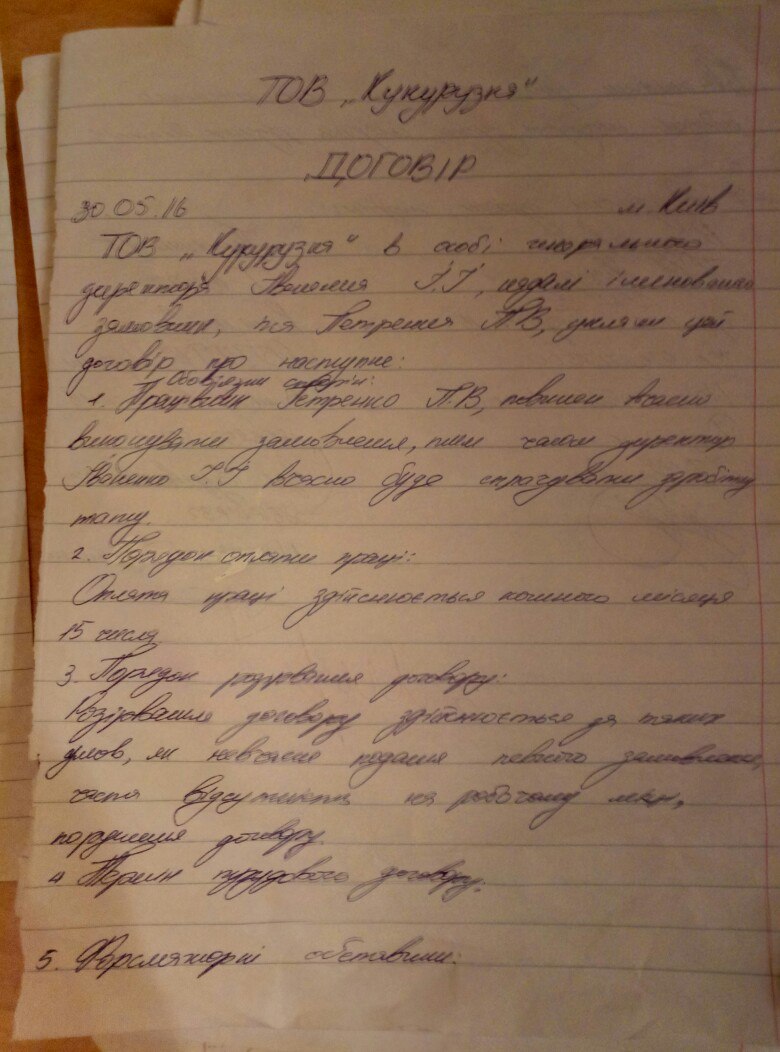 ТОВ „Кукурузка"
ДОГОВІР
30.05.16 м. Київ
ТОВ „Кукурузка" в особі генерального
директора Іваненка І.І, надалі іменований
замовник, та Петренка П.В, уклали цей
договір про наступне:
Обов'язки сторін:
1. Працівник Петренко П.В, повинен вчасно
виконувати замовлення, тим часом директор
Іваненко І.І вчасно буде сплачувати заробітну
плату.
2. Порядок оплати праці:
Оплата праці здійснюється кожного місяця
15 числа
3. Порядок розірвання договору:
Розірвання договору здійснюється за таких
умов, як невчасне подання певного замовлення,
часта відсутність на робочому місці,
порушення договору.
4 Термін трудового договору:
5. Форсмажорні обставини: